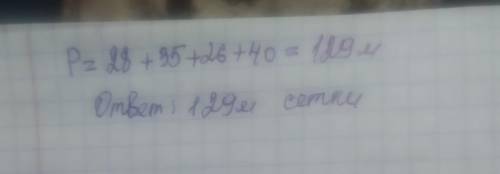 P= 28+35+26+40=129м
Ответ: 129м сетки